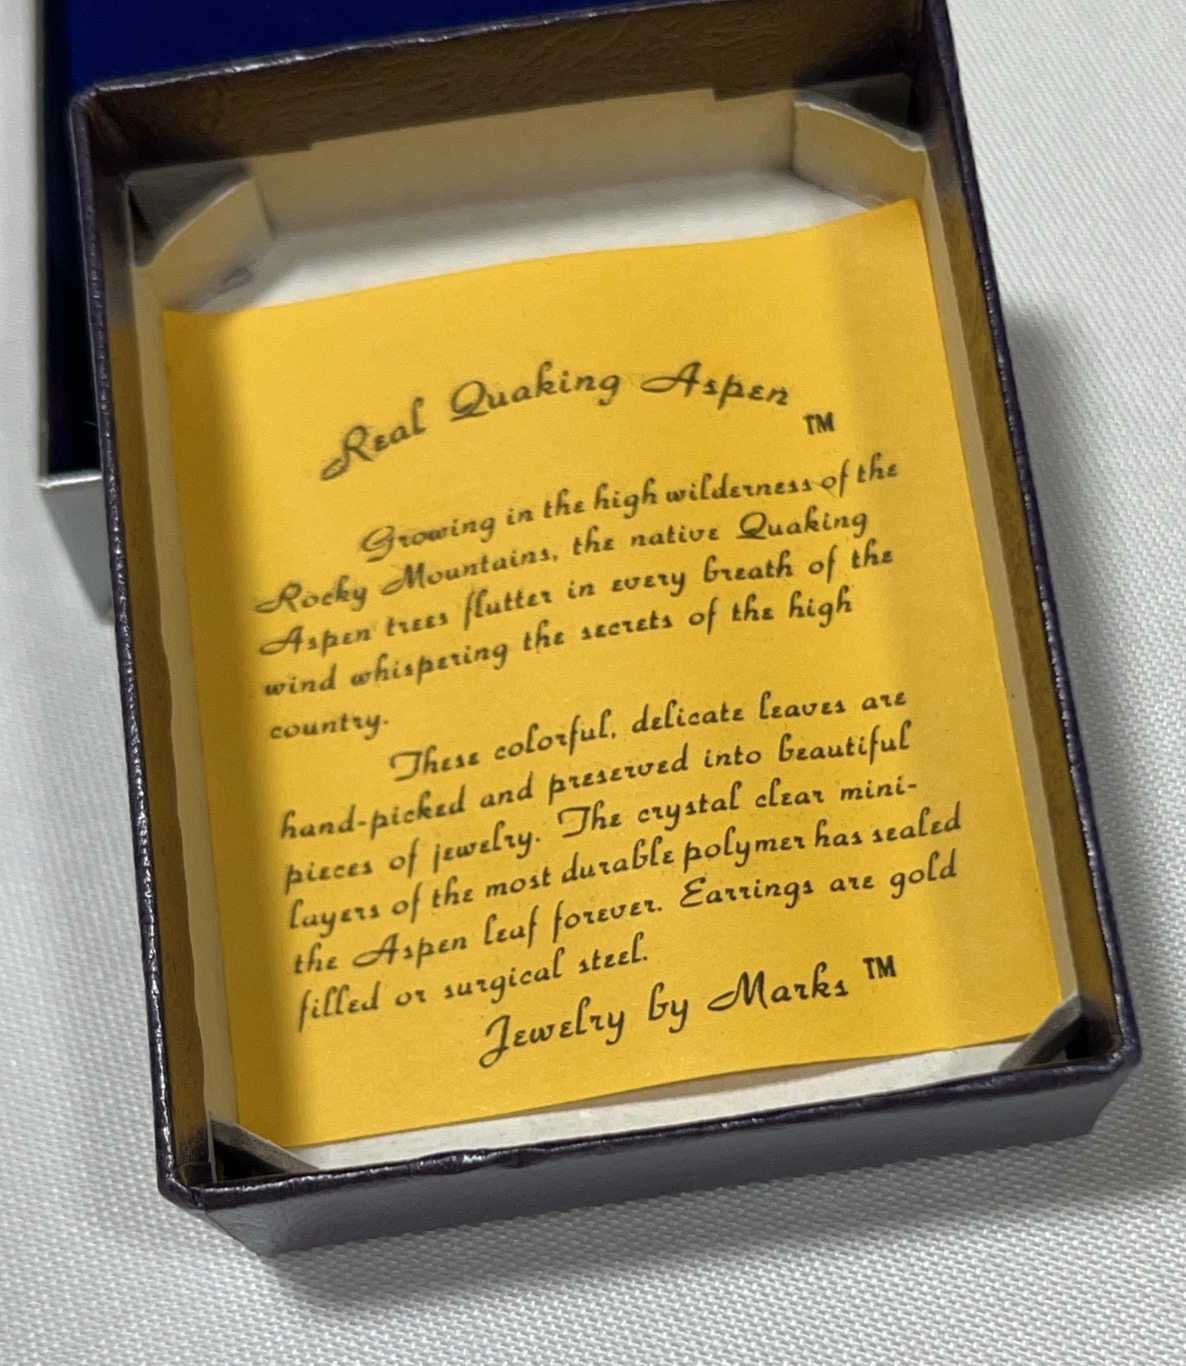 Real Quaking Aspen ™
Growing in the high wilderness of the
Rocky Mountains, the native Quaking
Aspen trees flutter in every breath of the
wind whispering the secrets of the high
country.
These colorful, delicate leaves are
hand-picked and preserved into beautiful
pieces of jewelry. The crystal clear mini-
layers of the most durable polymer has sealed
the Aspen leaf forever. Earrings are gold
filled or surgical steel.
Jewelry by Marks ™